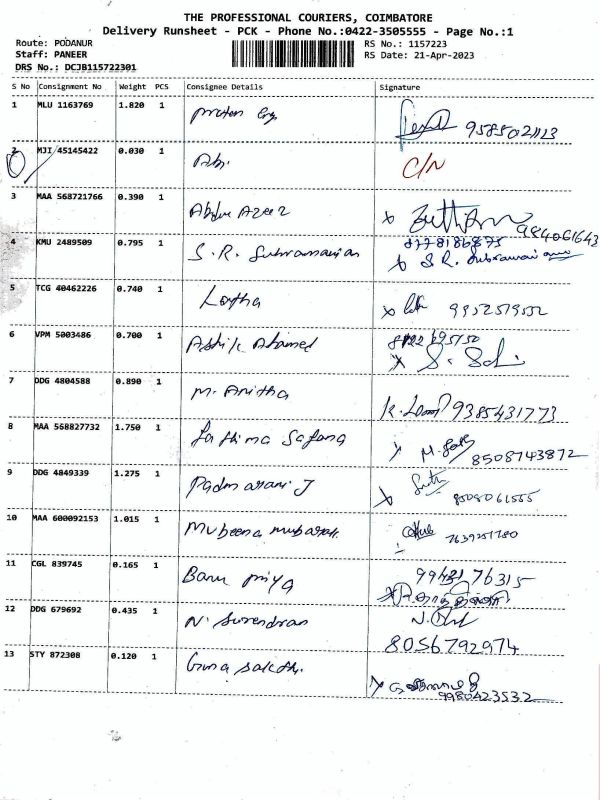 THE PROFESSIONAL COURIERS, COIMBATORE
Delivery Runsheet - PCK - Phone No.:0422-3505555 - Page No.:1
Route: PODANUR
Staff: PANEER
DRS No.: DCJB115722301
RS No.: 1157223
RS Date: 21-Apr-2023
S No Consignment No Weight PCS Consignee Details Signature
1 MLU 1163769 1.820 1
9585021113
2 MJI 45145422 0.030 1 C/N
3 MAA 568721766 0.390 1 Abdu Azeez
4 KMU 2489509 0.795 1 S.R. Subramanian
8778186875
S R. Subramanian
5 TCG 40462226 0.740 1 Latha
9952519552
6 VPM 5003486 0.700 1 Ashik Ahamed
7 DDG 4804588 0.890 1 M. Anitha
9385431773
8 MAA 568827732 1.750 1 Fathima Safana
8508743872
9 DDG 4849339 1.275 1 Padmarani J
10 MAA 600092153 1.015 1 Mubeena mubarak
7639251780
11 CGL 839745 0.165 1 Banu priya
76315
12 DDG 679692 0.435 1 N. Surendran
8056792974
13 STY 872308 0.120 1
9980423532